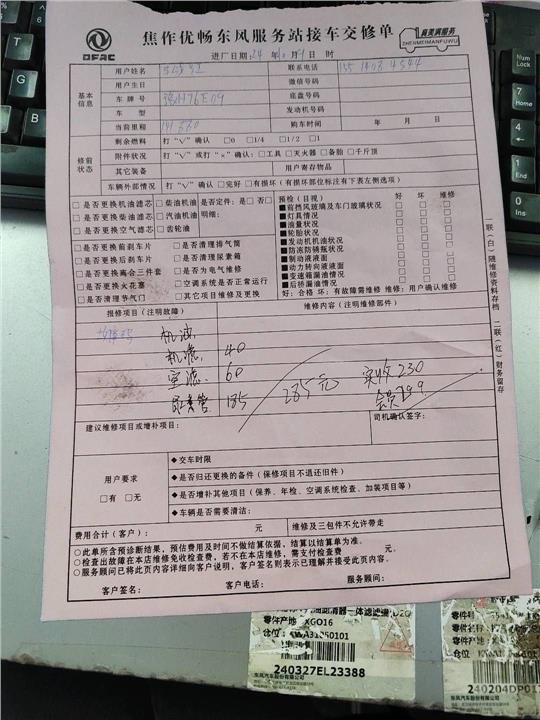 DFAC
焦作优畅东风服务站接车交修单
真美满服务
ZHENMEIMANFUWU
进厂日期: 24 年 10 月 9 日 时
基本信息
用户姓名
联系电话
用户生日
微信号码
车 牌 号
豫H76E09
底盘号码
车 型
发动机号码
当前里程
购车时间
年 月 日
修前状态
剩余燃料
打“√”确认 □0 □1/4 □1/2 □1
附件状况
打“√”或打“×”确认: □工具 □灭火器 □备胎 □千斤顶
其它装备
用户寄存物品
车辆外部情况
打“√”确认 □完好 □有损坏(有损坏部位标注有下表左侧选项)
□是否更换机油滤芯 □柴油机油 是否定件: □是 □否
□是否更换柴油滤芯 □汽油机油 明细:
□是否更换空气滤芯 □齿轮油
□是否更换前刹车片 □是否清理排气筒
□是否更换后刹车片 □是否清理尿素箱
□是否更换离合三件套 □是否为电气维修
□是否更换火花塞 □空调系统是否正常运行
□是否清理节气门 □其它项目维修及更换
预检(目视) 好 坏 维修
■前挡风玻璃及车门玻璃状况
■灯具情况
■油量状况
■轮胎状况
■发动机机油状况
■防冻防锈瓶状况
■制动液液面
■动力转向液液面
■变速箱漏油情况
■后桥漏油情况
好: 合格 坏: 有故障需维修 维修: 用户确认维修
报修项目(注明故障)
维修内容(注明维修部件)
机油
机滤 40
空滤 60
185
285元
实收 230
会员
建议维修项目或增补项目:
司机确认签字:
用户要求
□有 □无
◆交车时限
◆是否归还更换的备件(保修项目不退还旧件)
◆是否增补其他项目(保养、年检、空调系统检查、加装项目等)
◆车辆是否需要清洁:
费用合计(客户): 元
维修及三包件不允许带走
○此单所含预诊断结果,预估费用及时间不做结算依据,结算以结算单为准。
○检查出故障在本店维修免收检查费,若不在本店维修,需支付检查费 元。
○服务顾问已将此页内容详细向客户说明,客户签名则表示已理解并接受此页内容。
客户签名: 客户电话: 服务顾问:
一联(白)随维修资料存档 二联(红)财务留存
零件产地: XGO16
240327EL23388
东风汽车股份有限公司
零件产地
仓位
240204DP01
东风汽车股份有限公司
Num Lock
7
Home
4
1
End
0
Ins